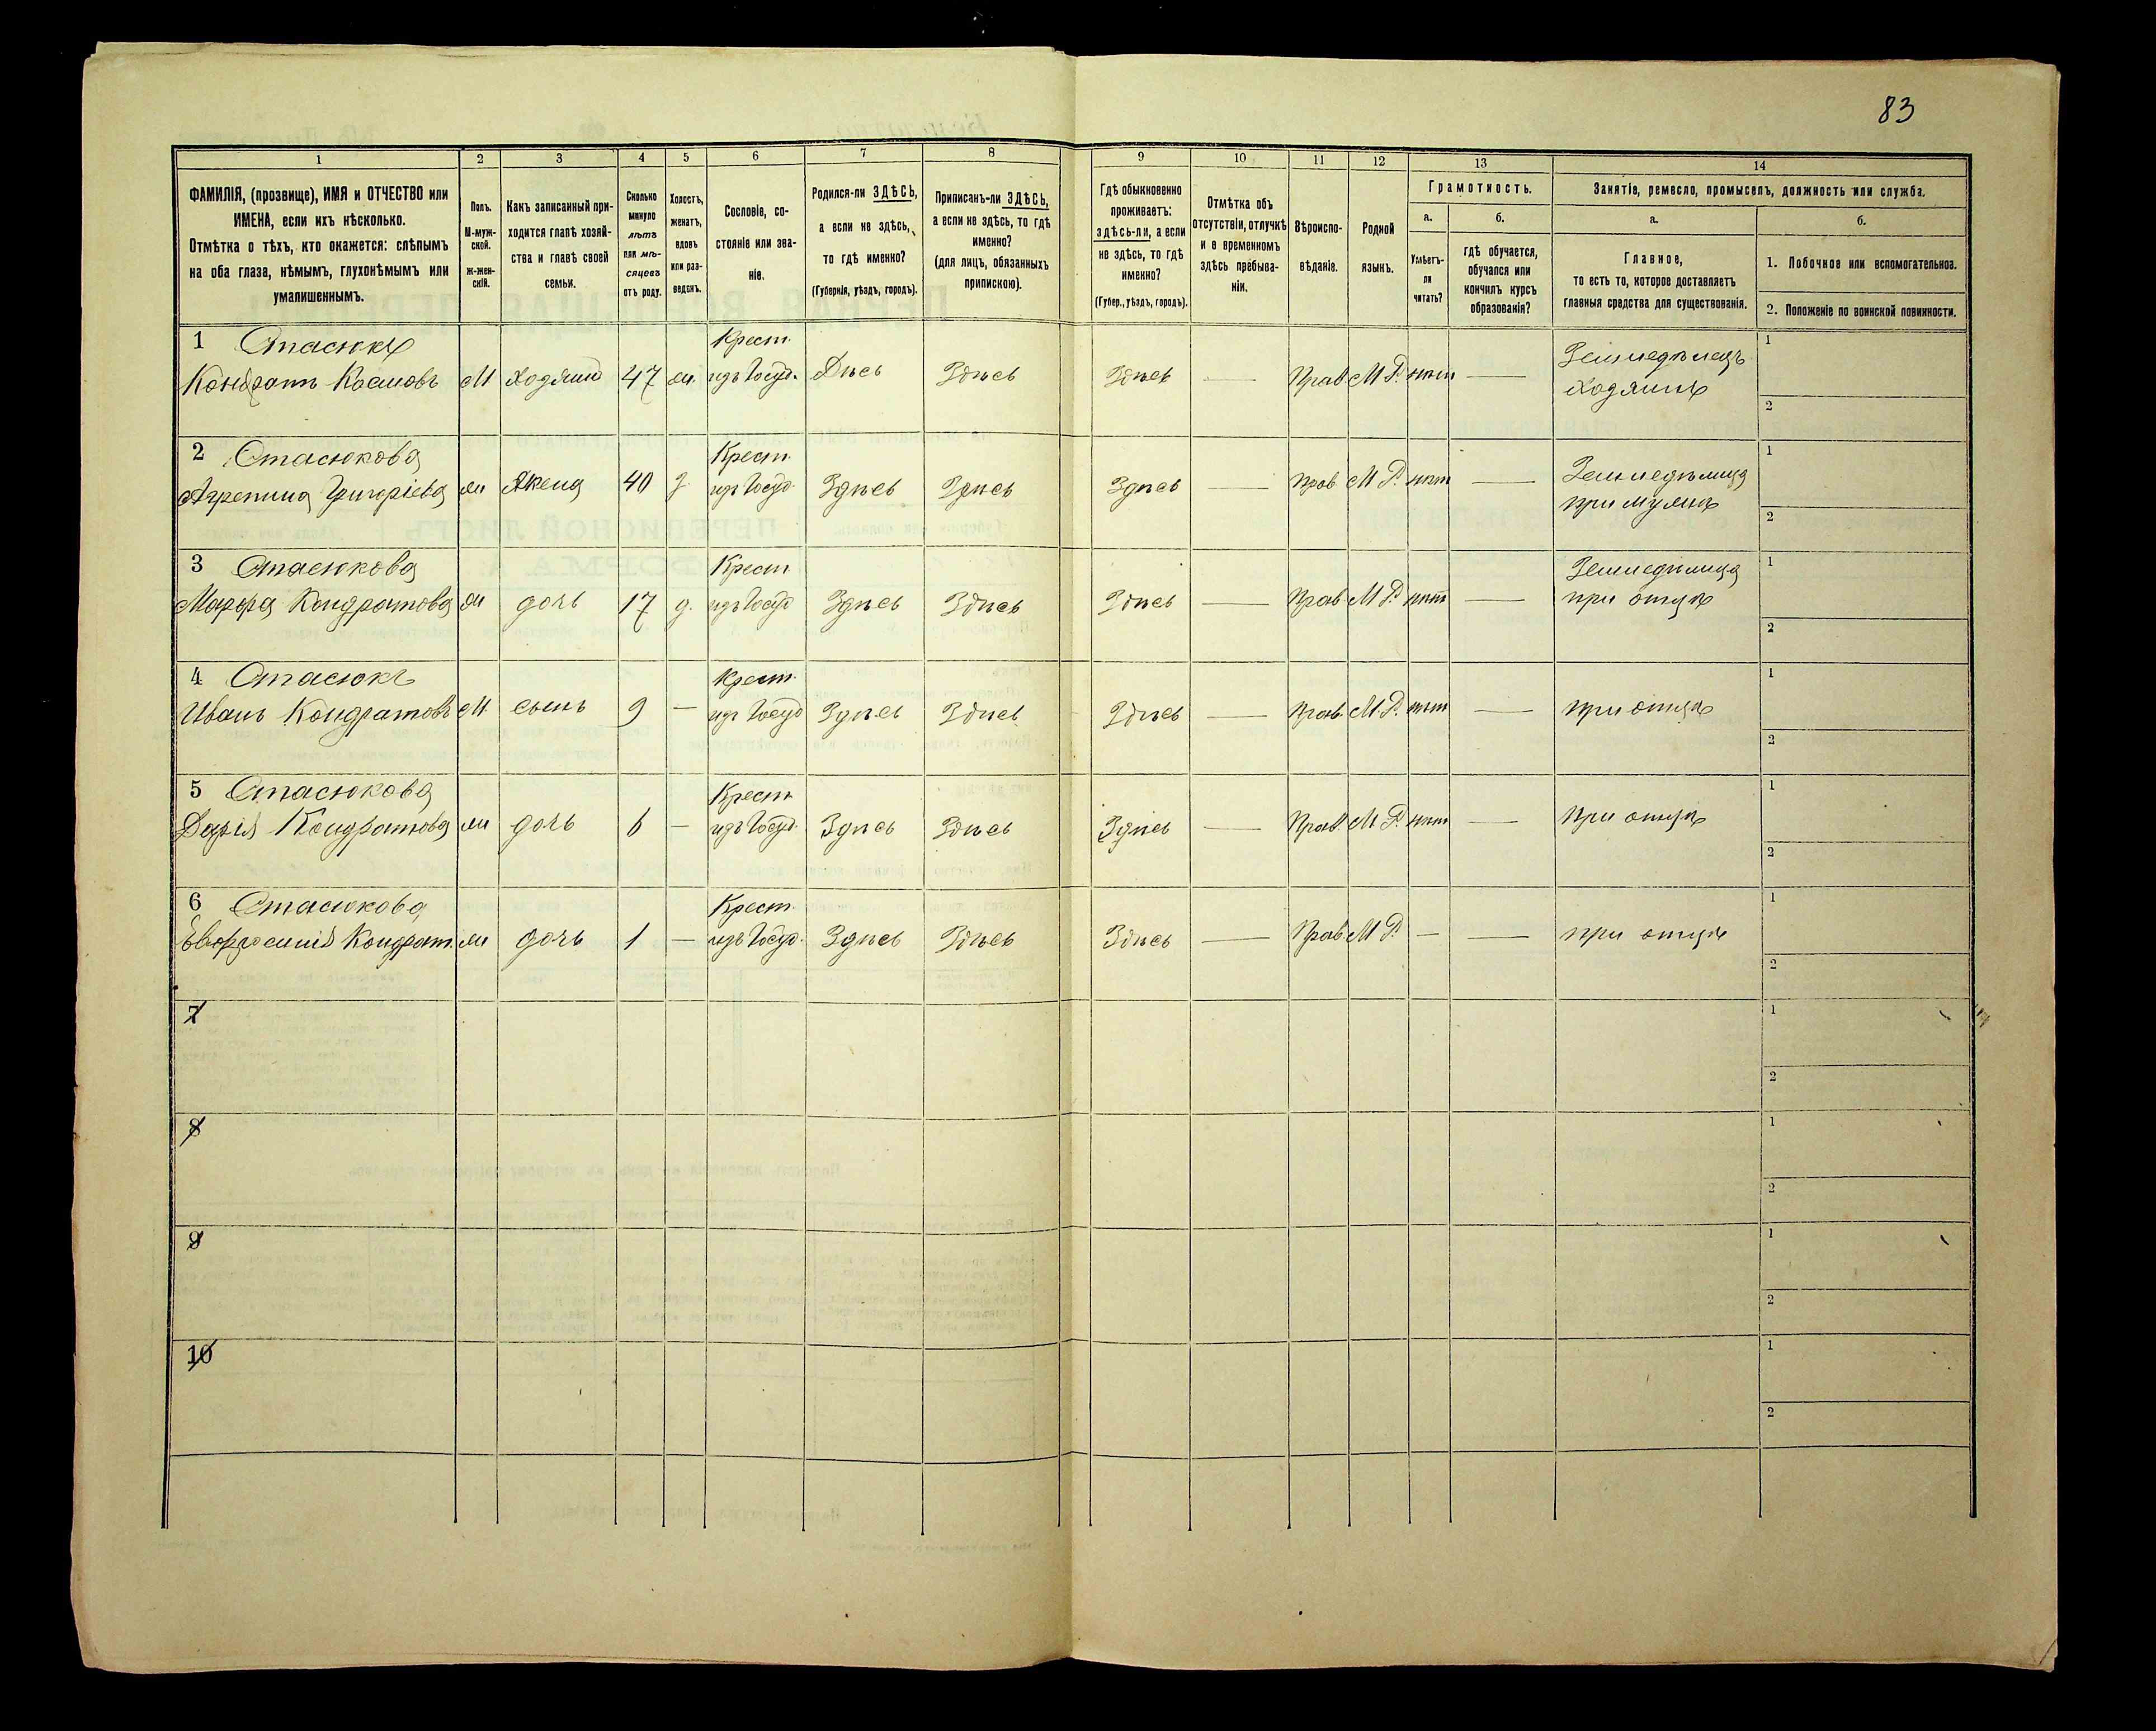 83
1
2
3
4
5
6
7
8
9
10
11
12
13
14
ФАМИЛІЯ, (прозвище), ИМЯ и ОТЧЕСТВО или
ИМЕНА, если ихъ нѣсколько.
Отмѣтка о тѣхъ, кто окажется: слѣпымъ
на оба глаза, нѣмымъ, глухонѣмымъ или
умалишеннымъ.
Полъ.
М-муж-
ской.
ж-жен-
скій.
Какъ записанный при-
ходится главѣ хозяй-
ства и главѣ своей
семьи.
Сколько
минуло
лѣтъ
или мѣ-
сяцевъ
отъ роду.
Холостъ,
женатъ,
вдовъ
или раз-
веденъ.
Сословіе, со-
стояніе или зва-
ніе.
Родился-ли ЗДѢСЬ,
а если не здѣсь,
то гдѣ именно?
(Губернія, уѣздъ, городъ).
Приписанъ-ли ЗДѢСЬ,
а если не здѣсь, то гдѣ
именно?
(для лицъ, обязанныхъ
припискою).
Гдѣ обыкновенно
проживаетъ:
здѣсь-ли, а если
не здѣсь, то гдѣ
именно?
(Губер., уѣздъ, городъ).
Отмѣтка объ
отсутствіи, отлучкѣ
и о временномъ
здѣсь пребыва-
ніи.
Вѣроиспо-
вѣданіе.
Родной
языкъ.
Грамотность.
а.
б.
Умѣетъ-
ли
читать?
гдѣ обучается,
обучался или
кончилъ курсъ
образованія?
Занятіе, ремесло, промыселъ, должность или служба.
а.
б.
Главное,
то есть то, которое доставляетъ
главныя средства для существованія.
1. Побочное или вспомогательное.
2. Положеніе по воинской повинности.
1 Стасюкъ Крест. Земледѣлецъ 1
Кондратъ Космовъ М Хозяинъ 47 ж. изъ Госуд. Здѣсь Здѣсь Здѣсь — Прав М Р. нѣт — Хозяинъ
2
2 Стасюкова Крест. Земледѣлица 1
Агрепина Григоріева ж Жена 40 з изъ Госуд. Здѣсь Здѣсь Здѣсь — Прав М Р. нѣт — при мужѣ
2
3 Стасюкова Крест Земледѣлица 1
Марфа Кондратова ж дочь 17 д. изъ Госуд Здѣсь Здѣсь Здѣсь — Прав. М Р. нѣт — при отцѣ
2
4 Стасюкъ Крест. 1
Иванъ Кондратовъ М сынъ 9 — изъ Госуд Здѣсь Здѣсь Здѣсь — Прав. М Р. нѣт — при отцѣ
2
5 Стасюкова Крест 1
Дарія Кондратова ж дочь 6 — изъ Госуд. Здѣсь Здѣсь Здѣсь — Прав. М Р. нѣт — при отцѣ
2
6 Стасюкова Крест. 1
Евфросинія Кондрат. ж дочь 1 — изъ Госуд. Здѣсь Здѣсь Здѣсь — Прав. М Р. — — при отцѣ
2
7 1
2
8 1
2
9 1
2
10 1
2